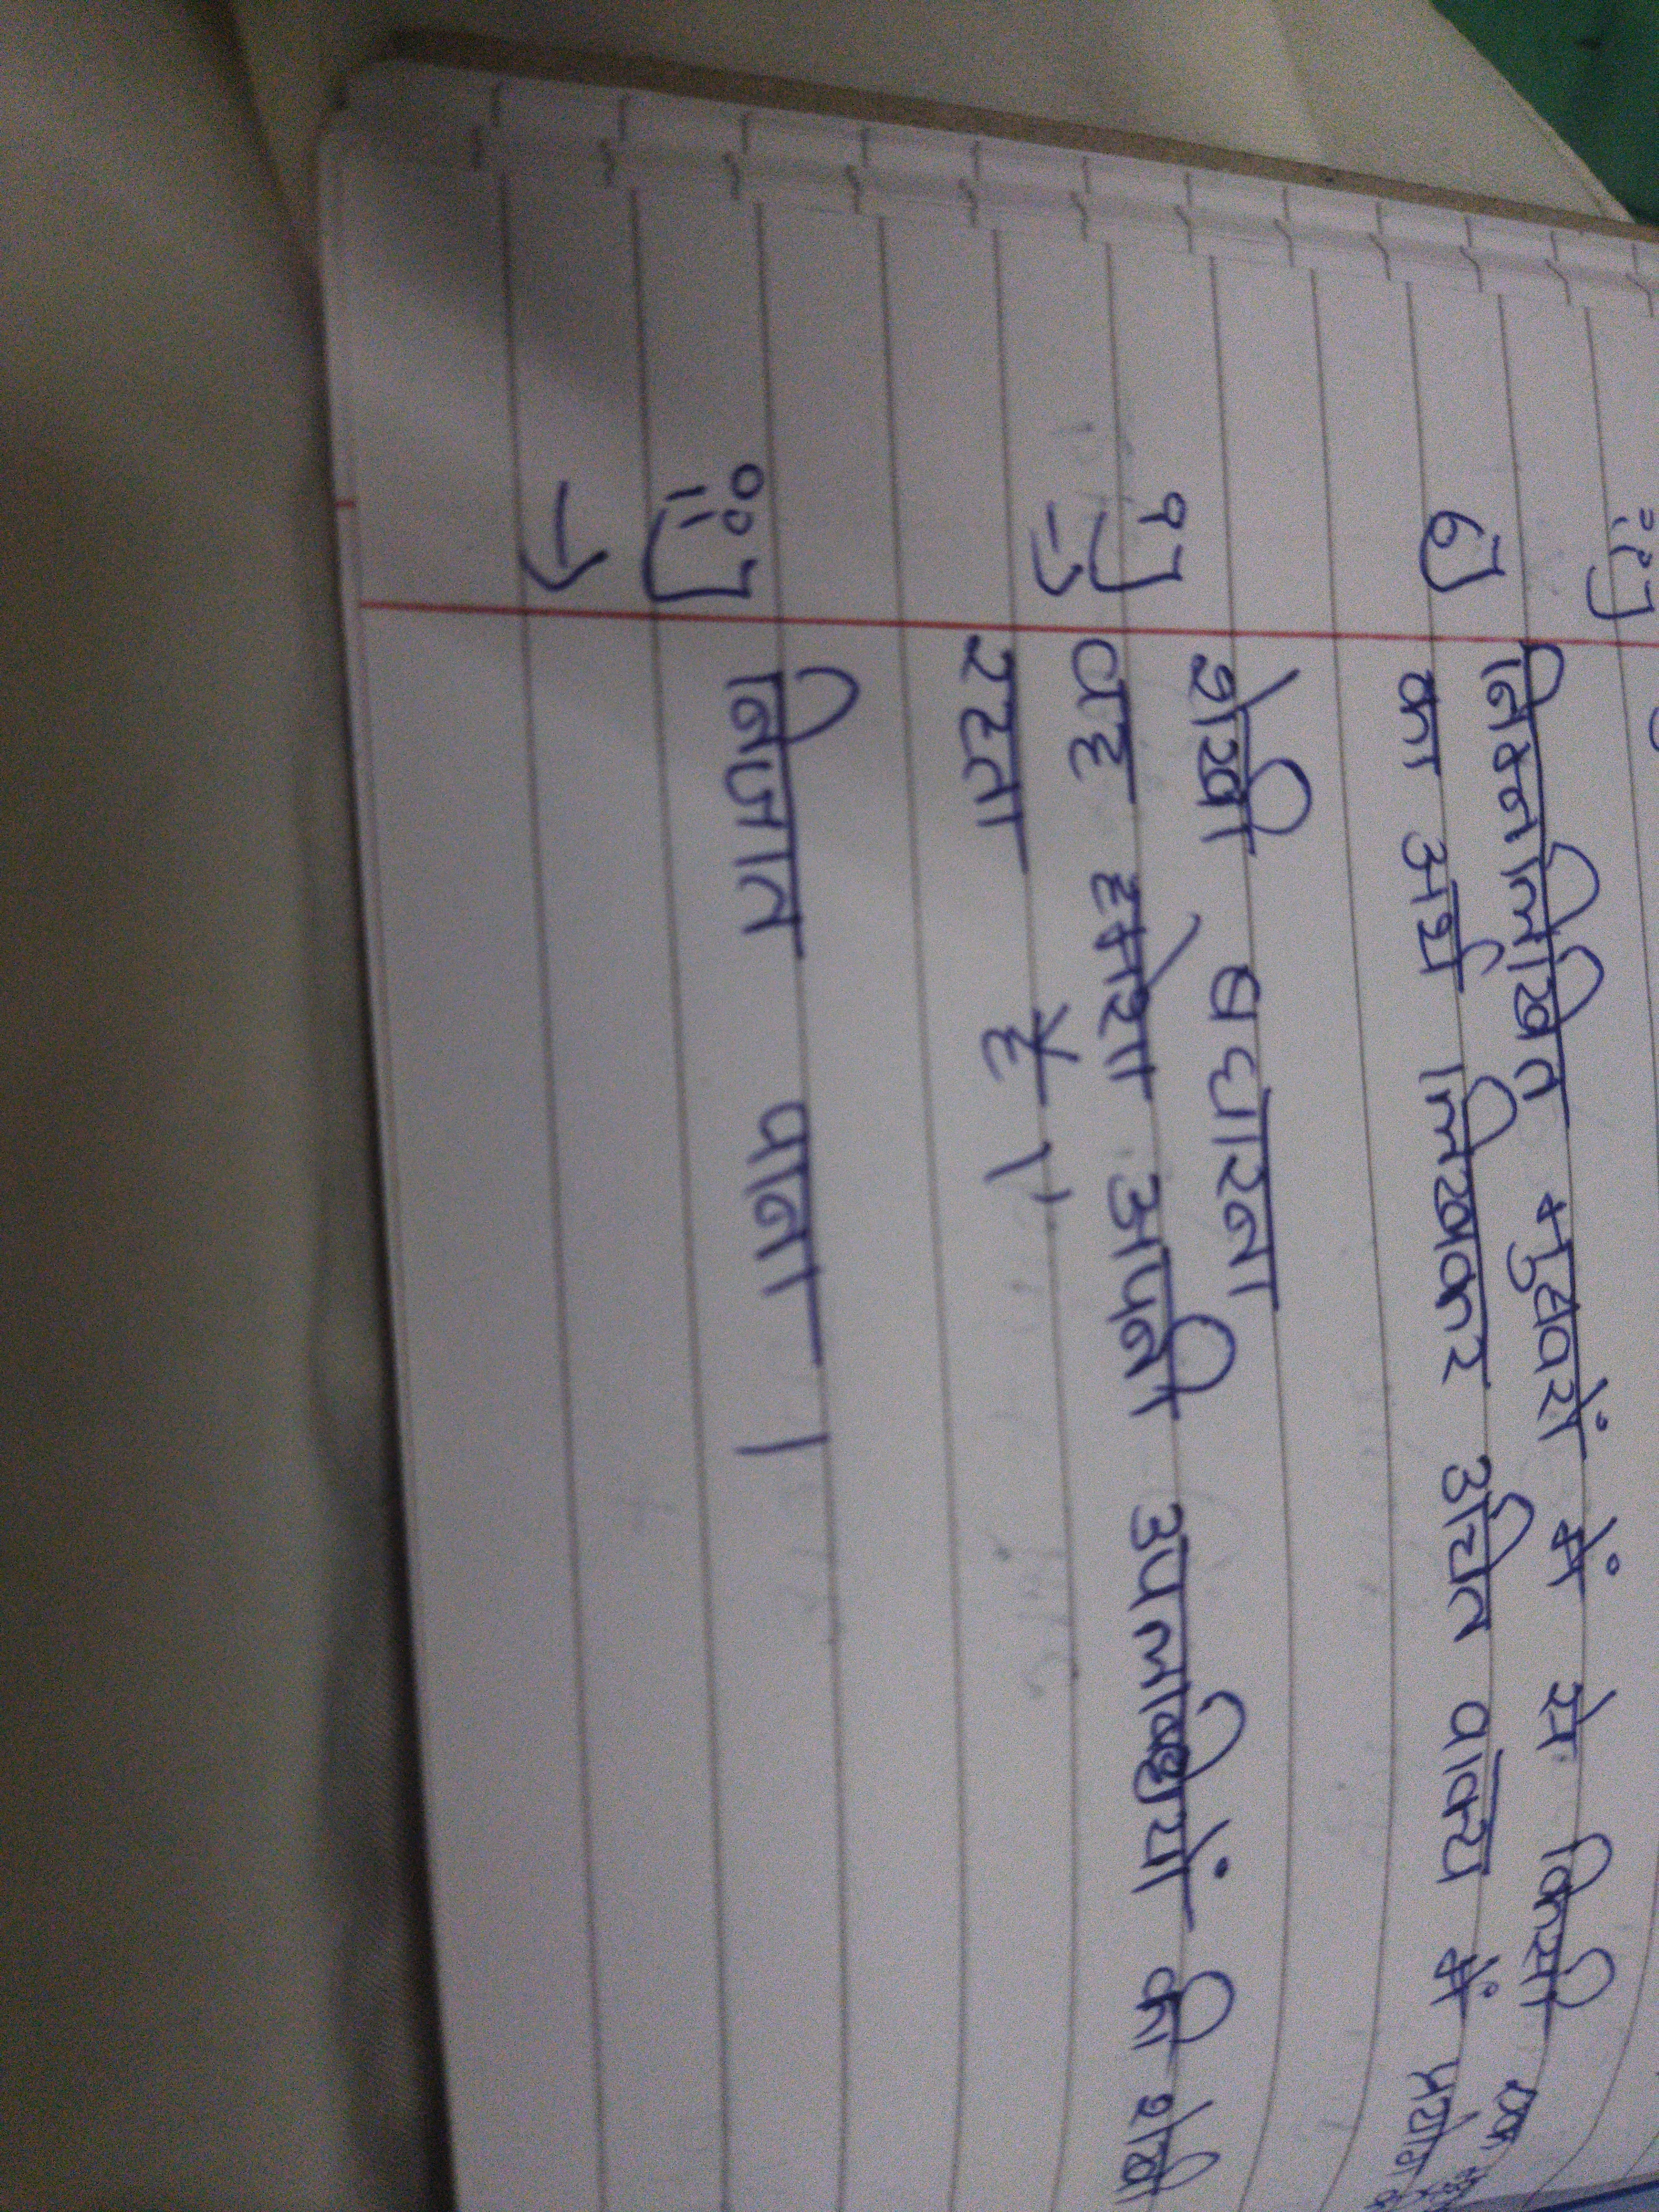 ii]
6] निम्नलिखित मुहावरों में से किसी एक
का अर्थ लिखकर उचित वाक्य में प्रयोग
i] शेखी बघारना
→ वह हमेशा अपनी उपलब्धियों की शेखी
रहता है ।
ii] निजात पाना ।
→